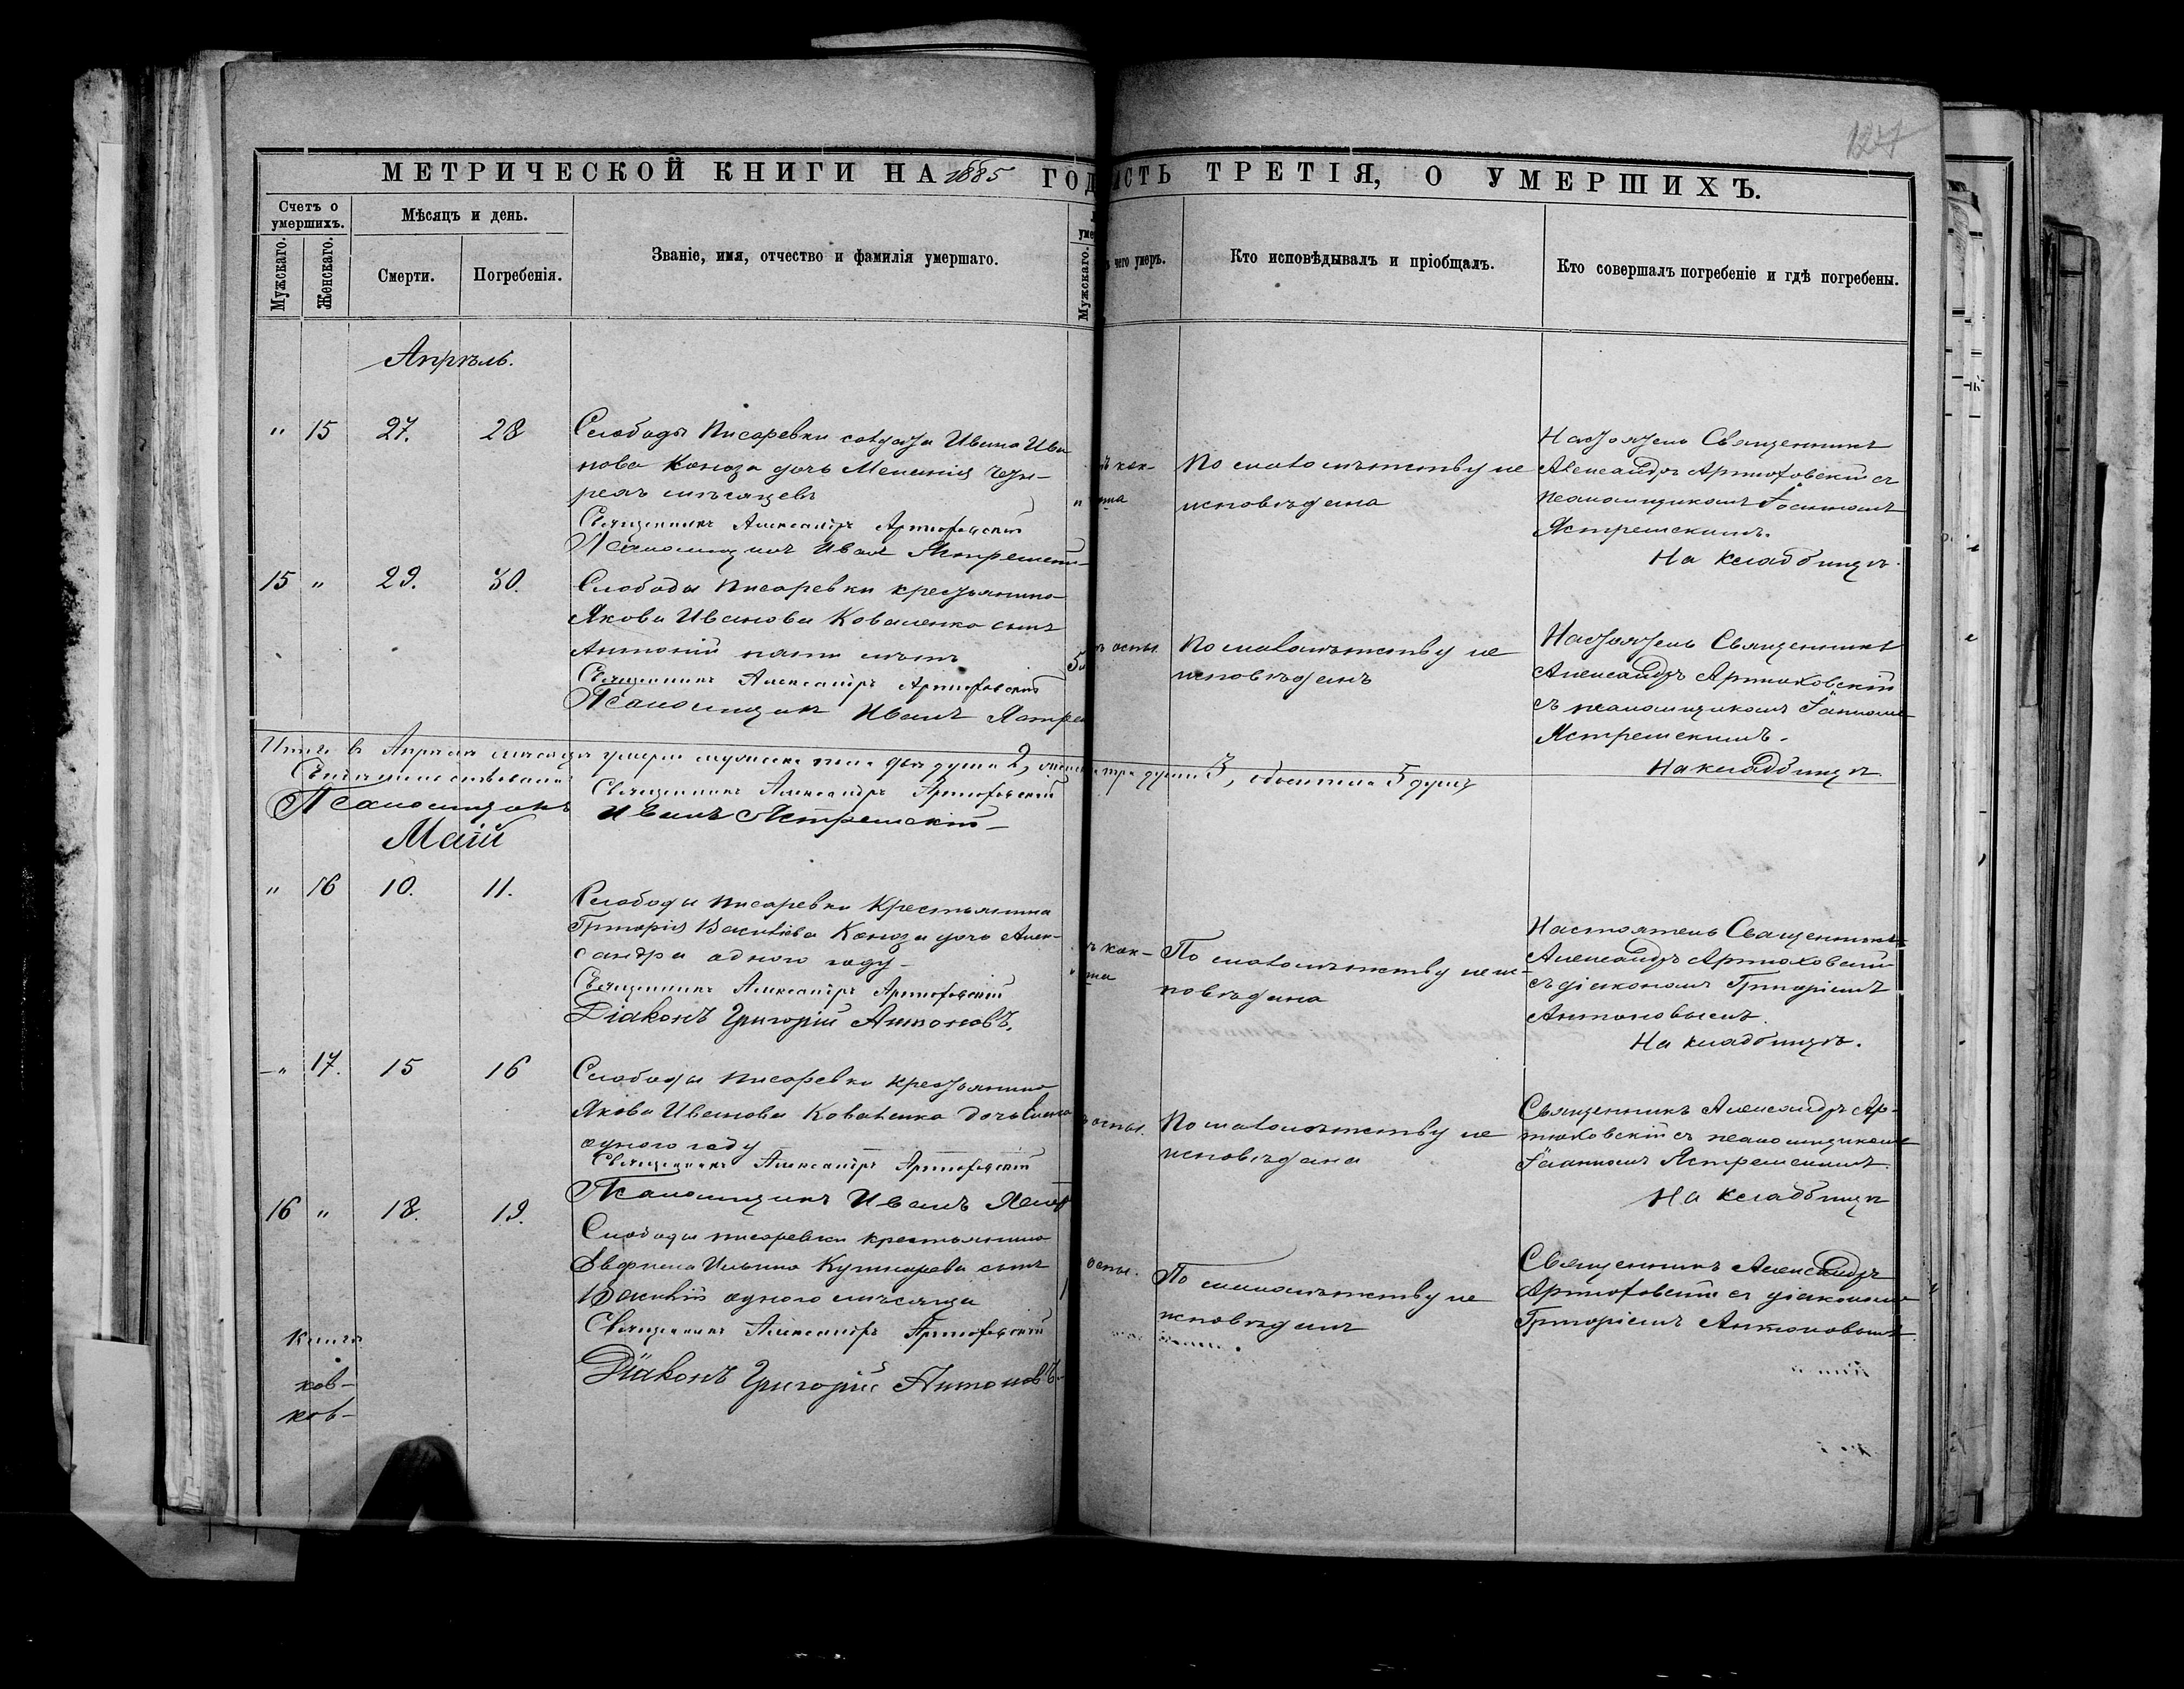 127
МЕТРИЧЕСКОЙ КНИГИ НА 1885 ГОД
ТРЕТІЯ, О УМЕРШИХЪ.
Счетъ о умершихъ.
Мѣсяцъ и день.
Званіе, имя, отчество и фамилія умершаго.
чего умеръ.
Кто исповѣдывалъ и пріобщалъ.
Кто совершалъ погребеніе и гдѣ погребены.
Мужскаго.
Женскаго.
Смерти.
Погребенія.
Мужскаго.
Апрѣль.
" 15 27. 28
Слободы Писаревки солдата Ивана Ива
нова Конюза дочь Меланія четы-
рехъ мѣсяцевъ
Священникъ Александръ Артюховскій
Псаломщикъ Иванъ
По малолѣтству не
исповѣдана
Настоятель Священникъ
Александръ Артюховскій съ
псаломщикомъ Іоанномъ
Ястремскимъ.
На кладбищѣ.
15 " 29. 30.
Слободы Писаревки крестьянина
Якова Иванова Коваленка сынъ
Антоній пяти лѣтъ
Священникъ Александръ Артюховскій
Псаломщикъ Иванъ
5
оспы.
По малолѣтству не
исповѣданъ
Настоятель Священникъ
Александръ Артюховскій
съ псаломщикомъ Іоанномъ
Ястремскимъ.
На кладбищѣ
Итого въ Апрѣлѣ мѣсяцѣ умерло мужеска пола двѣ души 2, три души 3, обоего пола 5 душъ
Священникъ Александръ Артюховскій
Псаломщикъ Иванъ Ястремскій
Маій
" 16 10. 11.
Слободы Писаревки Крестьянина
Григорія Василіева Конюза дочь Алек-
сандра одного году
Священникъ Александръ Артюховскій
Діаконъ Григорій Антоновъ.
По малолѣтству не ис-
повѣдана
Настоятель Священникъ
Александръ Артюховскій
съ діакономъ Григоріемъ
Антоновымъ.
На кладбищѣ.
" 17. 15 16
Слободы Писаревки крестьянина
Якова Иванова Коваленка дочь
одного году
Священникъ Александръ Артюховскій
Псаломщикъ Иванъ
оспы.
По малолѣтству не
исповѣдана
Священникъ Александръ Ар-
тюховскій съ псаломщикомъ
Іоанномъ Ястремскимъ.
На кладбищѣ
16 " 18. 19.
Слободы Писаревки крестьянина
Ильина Кушнарева сынъ
Василій одного мѣсяца
Священникъ Александръ Артюховскій
Діаконъ Григорій Антоновъ
оспы.
По малолѣтству не
исповѣданъ
Священникъ Александръ
Артюховскій съ діакономъ
Григоріемъ Антоновымъ.